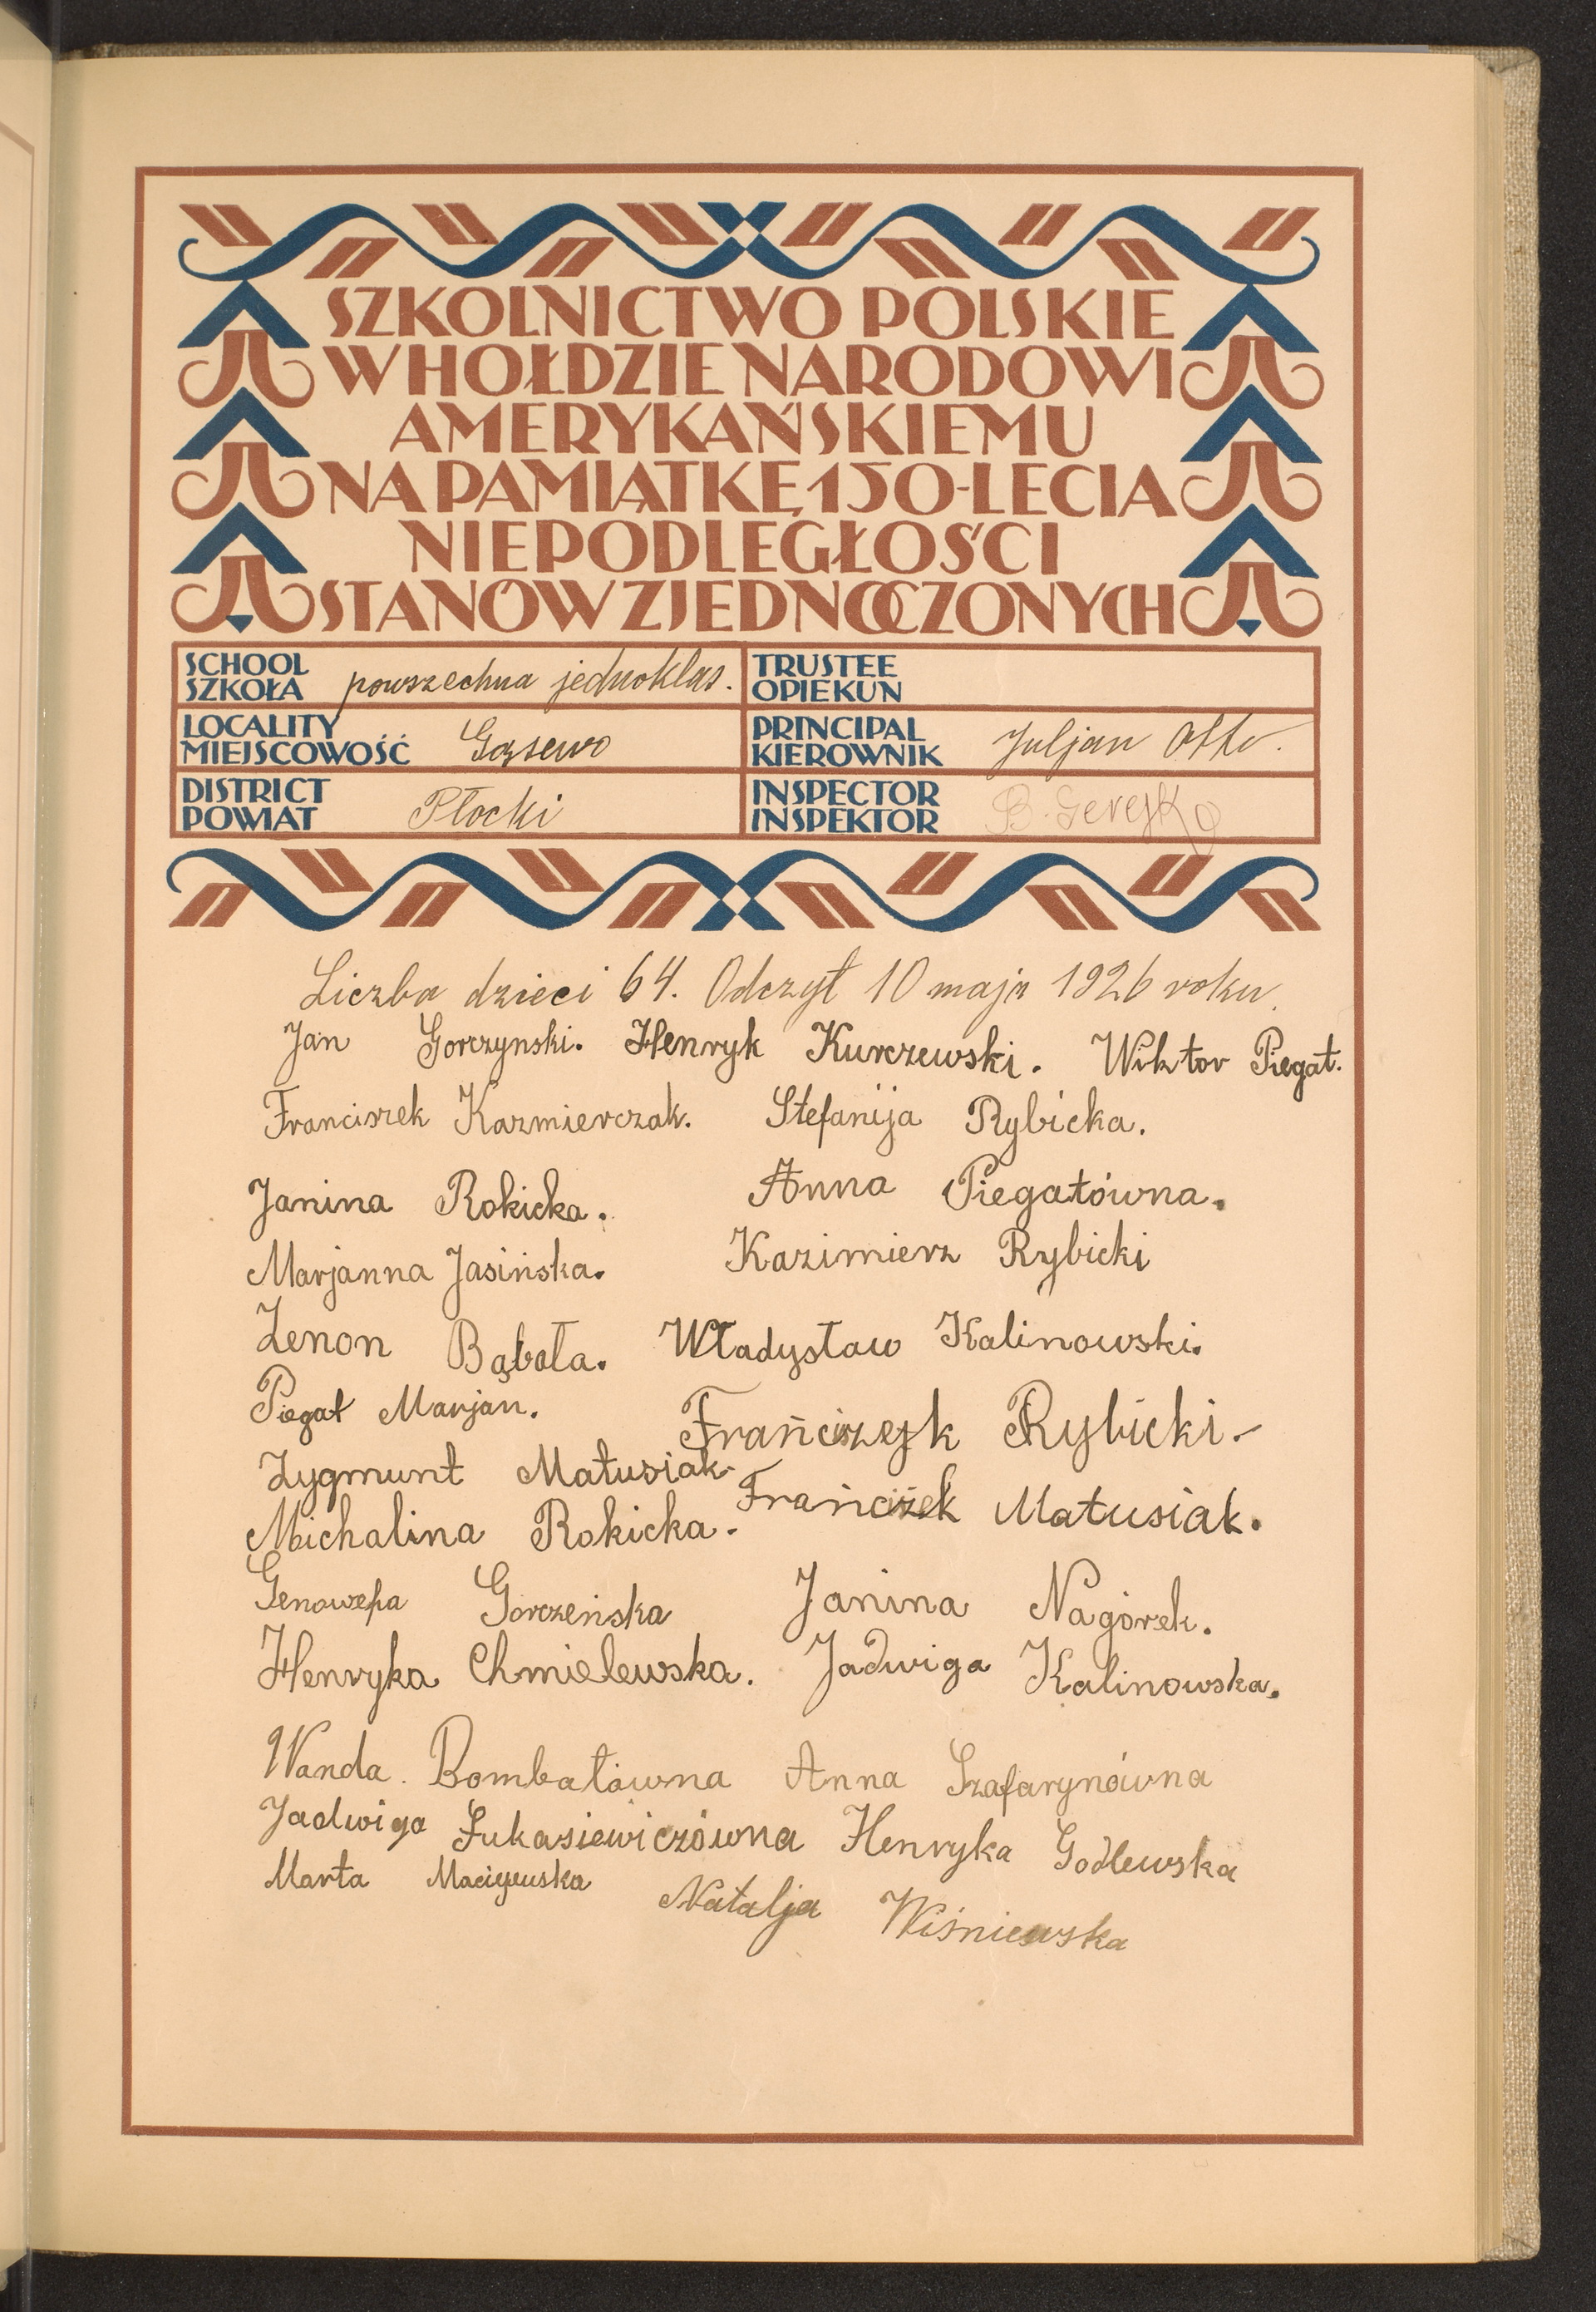 SZKOLNICTWO POLSKIE
W HOŁDZIE NARODOWI
AMERYKAŃSKIEMU
NA PAMIĄTKĘ 150-LECIA
NIEPODLEGŁOŚCI
STANÓW ZJEDNOCZONYCH
SCHOOL
SZKOŁA powszechna jednoklas.
TRUSTEE
OPIEKUN
LOCALITY
MIEJSCOWOŚĆ Gązewo
PRINCIPAL
KIEROWNIK Juljan Otto.
DISTRICT
POWIAT Płocki
INSPECTOR
INSPEKTOR B.
Liczba dzieci 64. Odczyt 10 maja 1926 roku.
Jan Gorczynski. Henryk Kurczewski. Wiktor Piegat.
Franciszek Kazmierczak. Stefanija Rybicka.
Janina Rokicka. Anna Piegatówna.
Marjanna Jasińska. Kazimierz Rybicki
Zenon Bąbała. Władysław Kalinowski.
Piegat Marjan. Frańciszejk Rybicki.
Zygmunt Matusiak. Frańciszek Matusiak.
Michalina Rokicka.
Genowefa Gorczeńska Janina Nagórek.
Henryka Chmielewska. Jadwiga Kalinowska.
Wanda. Bombałówna Anna Szafarynówna
Jadwiga Łukasiewiczówna Henryka Godlewska
Marta Maciejewska Natalja Wiśniewska